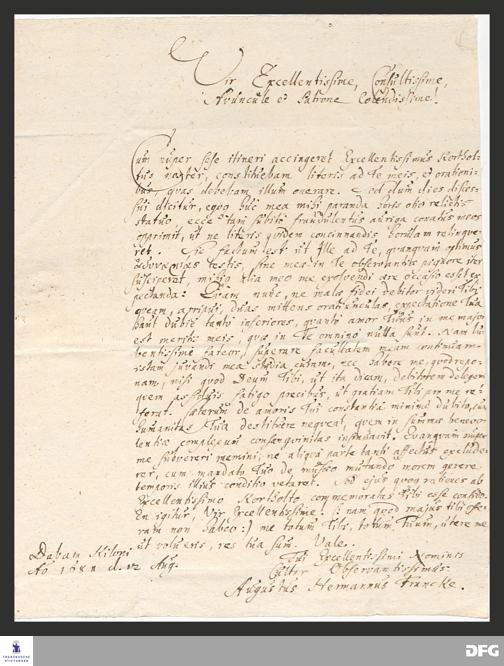 Vir Excellentissime, Consultissime,
Avuncule et Patrone Colendissime!
Cum nuper sese itineri accingeret Excellentissimus Korthol-
tus noster, constituebam literis ad Te meis, et orationi-
bus, quas debebam illum onerare. Sed dum dies disces-
sui dicitur, egoque mea mihi paranda
statuo ecce tam subiti fraudulentus auriga conatus meos
opprimit, ut ne literis quidem concinnandis horulam relinque-
ret. Sic factum est ut Ille ad Te, quanquam optimus
testis, sine mea in Te observantiae pignore iter
susceperit, mihique alia meo me exolvendi aere occasio esset ex-
pectanda: Quam nunc, ne mala fidei debitor viderer Tibi
quem, arripui, duas mittens oratiunculas, expectatione Tua
haut dubie tanto inferiores, quanto amor Tuus in me major
est meritis meis, quae in Te omnino nulla sunt. Nam lu-
bentissime fateor, superare facultatem meam
juvandi mea studia curam, nec habere me, quod repo-
nam, nisi quod Deum Tibi, ut ita dicam, debitorem delegem
quem assiduis fatigo precibus, ut gratiam Tibi pro me re-
ferat. Caeterum de amoris Tui constantia minime dubito, cum
humanitas Tua destituere nequeat, quem in summae benevo-
lentiae complexum insinuavit. Quanquam nuper
me subvereri memini, ne aliqua parte tanti affectus exclude-
rer, cum mandato Tuo de musaeo mutando morem gerere
temporis illius conditio vetaret. Sed ejus quoque rationes ab
Excellentissimo Kortholto commemoratas Tibi esse confido.
En igitur, Vir Excellentissime! (: nam quod majus tibi offe-
ram non habeo :) me totum Tibi, totum Tuum, utere me
ut volueris, res tua sum. Vale.
Dabam Kiloni
Ao 1681 d. 12 Aug.
Tui Excellentissimi Nominis
Cultor Observantissimus
Augustus Hermannus Francke.
FRANCKESCHE
STIFTUNGEN
DFG